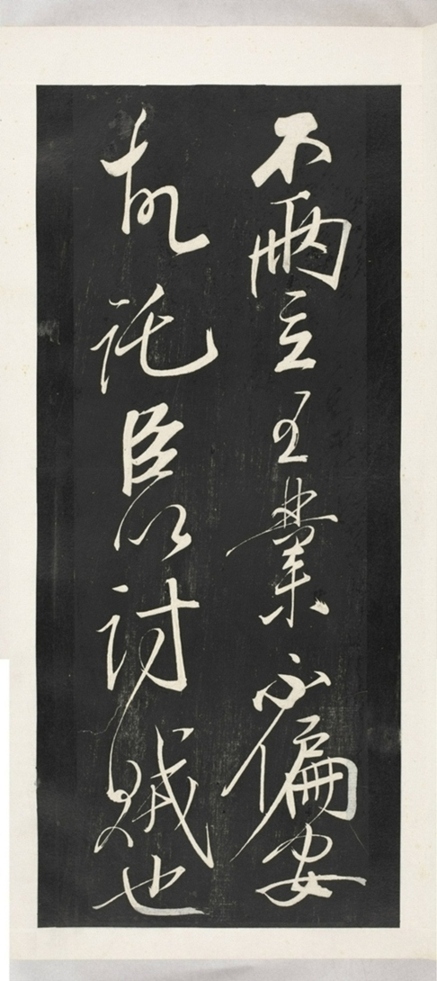 不兩立王業不偏安
故託臣以討賊也